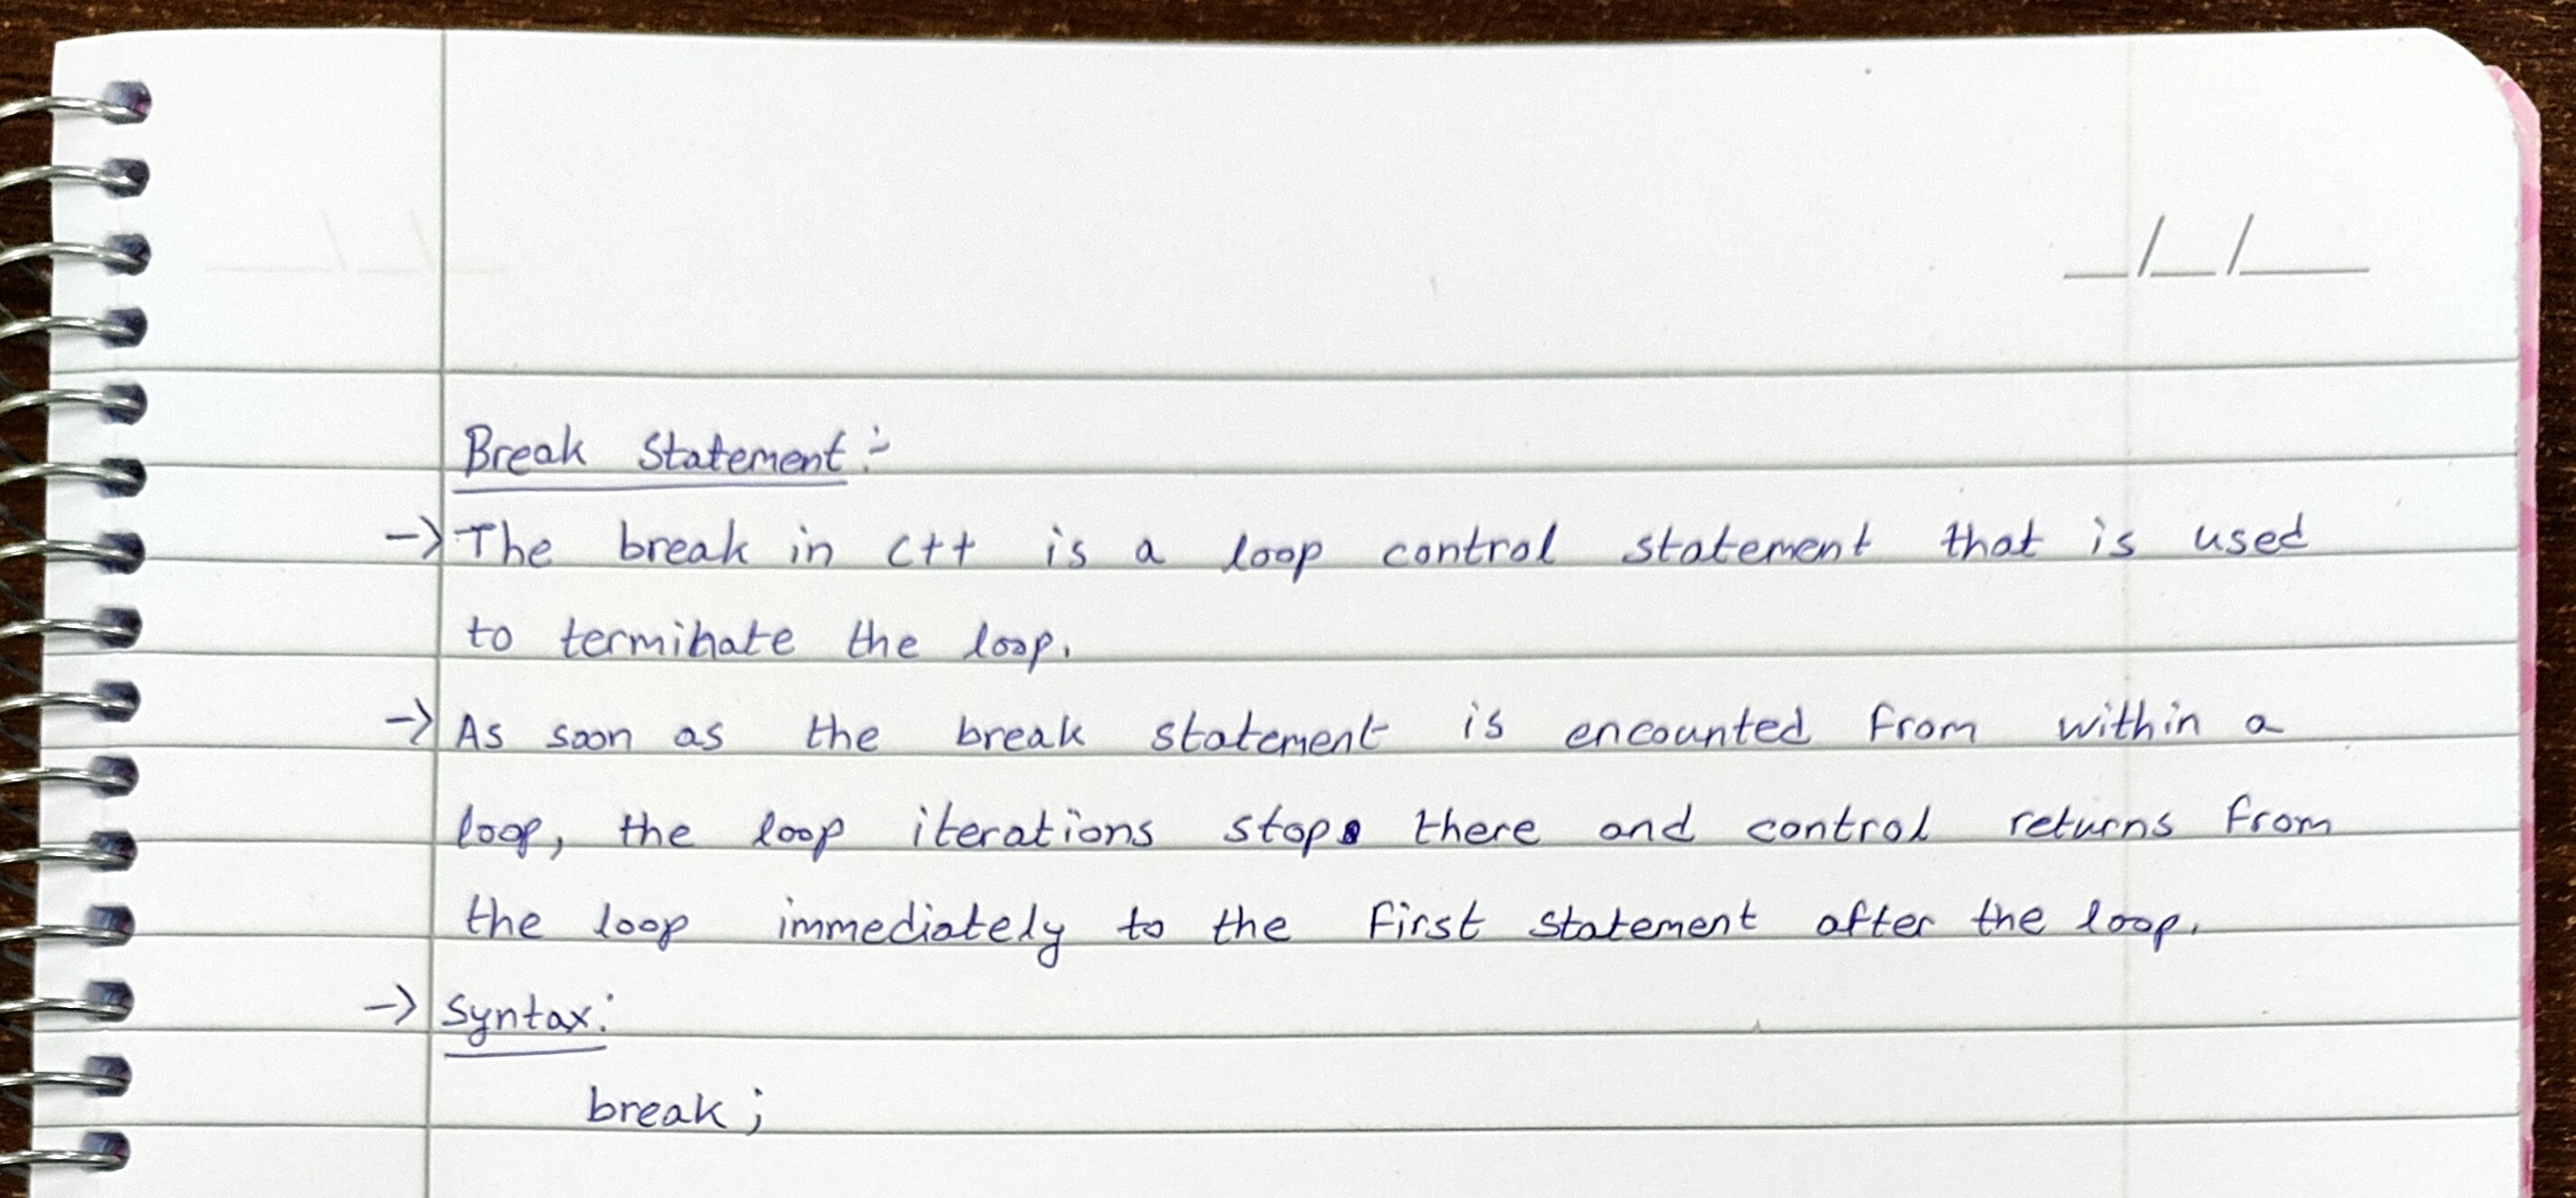 Break Statement :-
-> The break in C++ is a loop control statement that is used
to terminate the loop.
-> As soon as the break statement is encounted from within a
loop, the loop iterations stops there and control returns from
the loop immediately to the first statement after the loop.
-> Syntax:
break ;